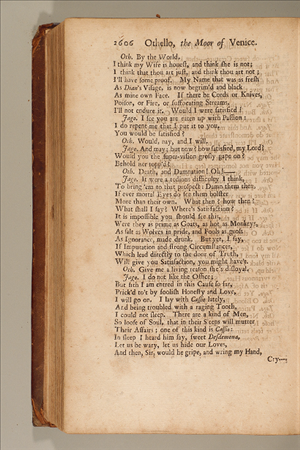 2606 Othello, the Moor of Venice.
Oth. By the World,
I think my Wife is honest, and think she is not;
I think that thou art just, and think thou art not;
I'll have some proof. My Name that was as fresh
As Dian's Visage, is now begrim'd and black
As mine own Face. If there be Cords or Knives,
Poison, or Fire, or suffocating Streams,
I'll not endure it. Would I were satisfied!
Jago. I see you are eaten up with Passion:
I do repent me that I put it to you,
You would be satisfied?
Oth. Would, nay, and I will.
Jago. And may; but how? how satisfied, my Lord?
Would you the super-vision grosly gape on?
Behold her topp'd?
Oth. Death, and Damnation! Oh!
Jago. It were a tedious difficulty, I think,
To bring 'em to that prospect: Damn them then,
If ever mortal Eyes do see them bolster
More than their own. What then? how then?
What shall I say? Where's Satisfaction?
It is impossible you should see this,
Were they as prime as Goats, as hot as Monkeys,
As salt as Wolves in pride, and Fools as gross
As Ignorance, made drunk. But yet, I say,
If Imputation and strong Circumstances,
Which lead directly to the door of Truth,
Will give you Satisfaction, you might have't.
Oth. Give me a living reason she's disloyal.
Jago. I do not like the Office;
But sith I am entred in this Cause so far,
Prick'd to't by foolish Honesty and Love,
I will go on. I lay with Cassio lately,
And being troubled with a raging Tooth,
I could not sleep. There are a kind of Men,
So loose of Soul, that in their Sleeps will mutter
Their Affairs; one of this kind is Cassio:
In sleep I heard him say, sweet Desdemona,
Let us be wary, let us hide our Loves,
And then, Sir, would he gripe, and wring my Hand,
Cry—